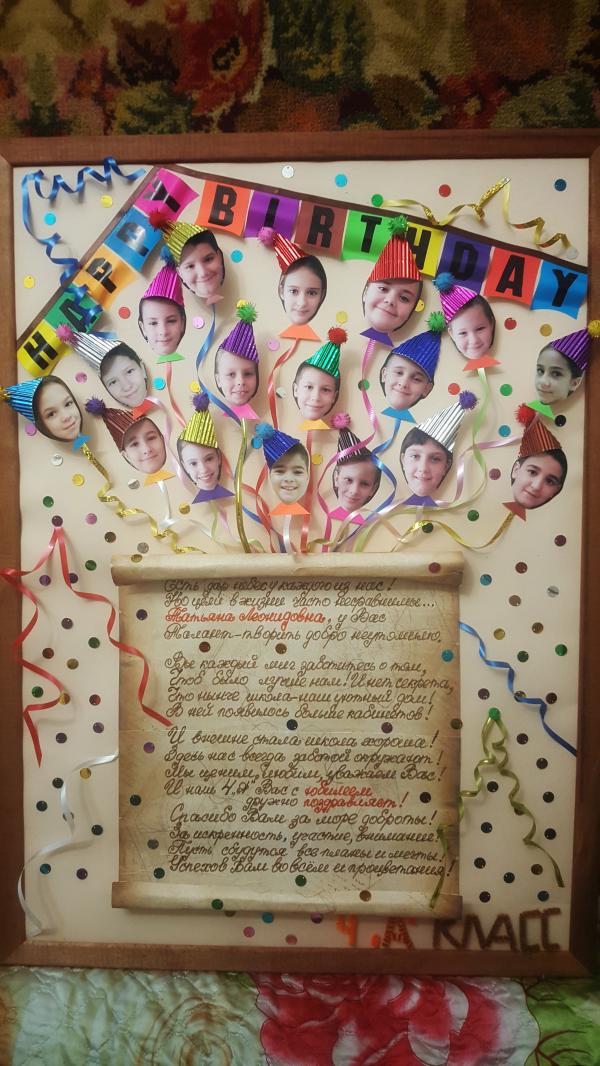 HAPPY BIRTHDAY
Есть дар небес у каждого из нас!
Но цели в жизни часто несравнимы...
Татьяна Леонидовна, у Вас
Талант-творить добро неутомимо.
Вы каждый миг заботитесь о том,
Чтоб было лучше нам! И нет секрета,
Что нынче школа-наш уютный дом!
В ней появилось больше кабинетов!
И внешне стала школа хороша!
Здесь нас всегда заботой окружают!
Мы ценим, любим, уважаем Вас!
И наш 4„А" Вас с юбилеем
дружно поздравляет!
Спасибо Вам за море доброты!
За искренность, участие, внимание!
Пусть сбудутся все планы и мечты!
Успехов Вам во всём и процветания!
4 „А" КЛАСС